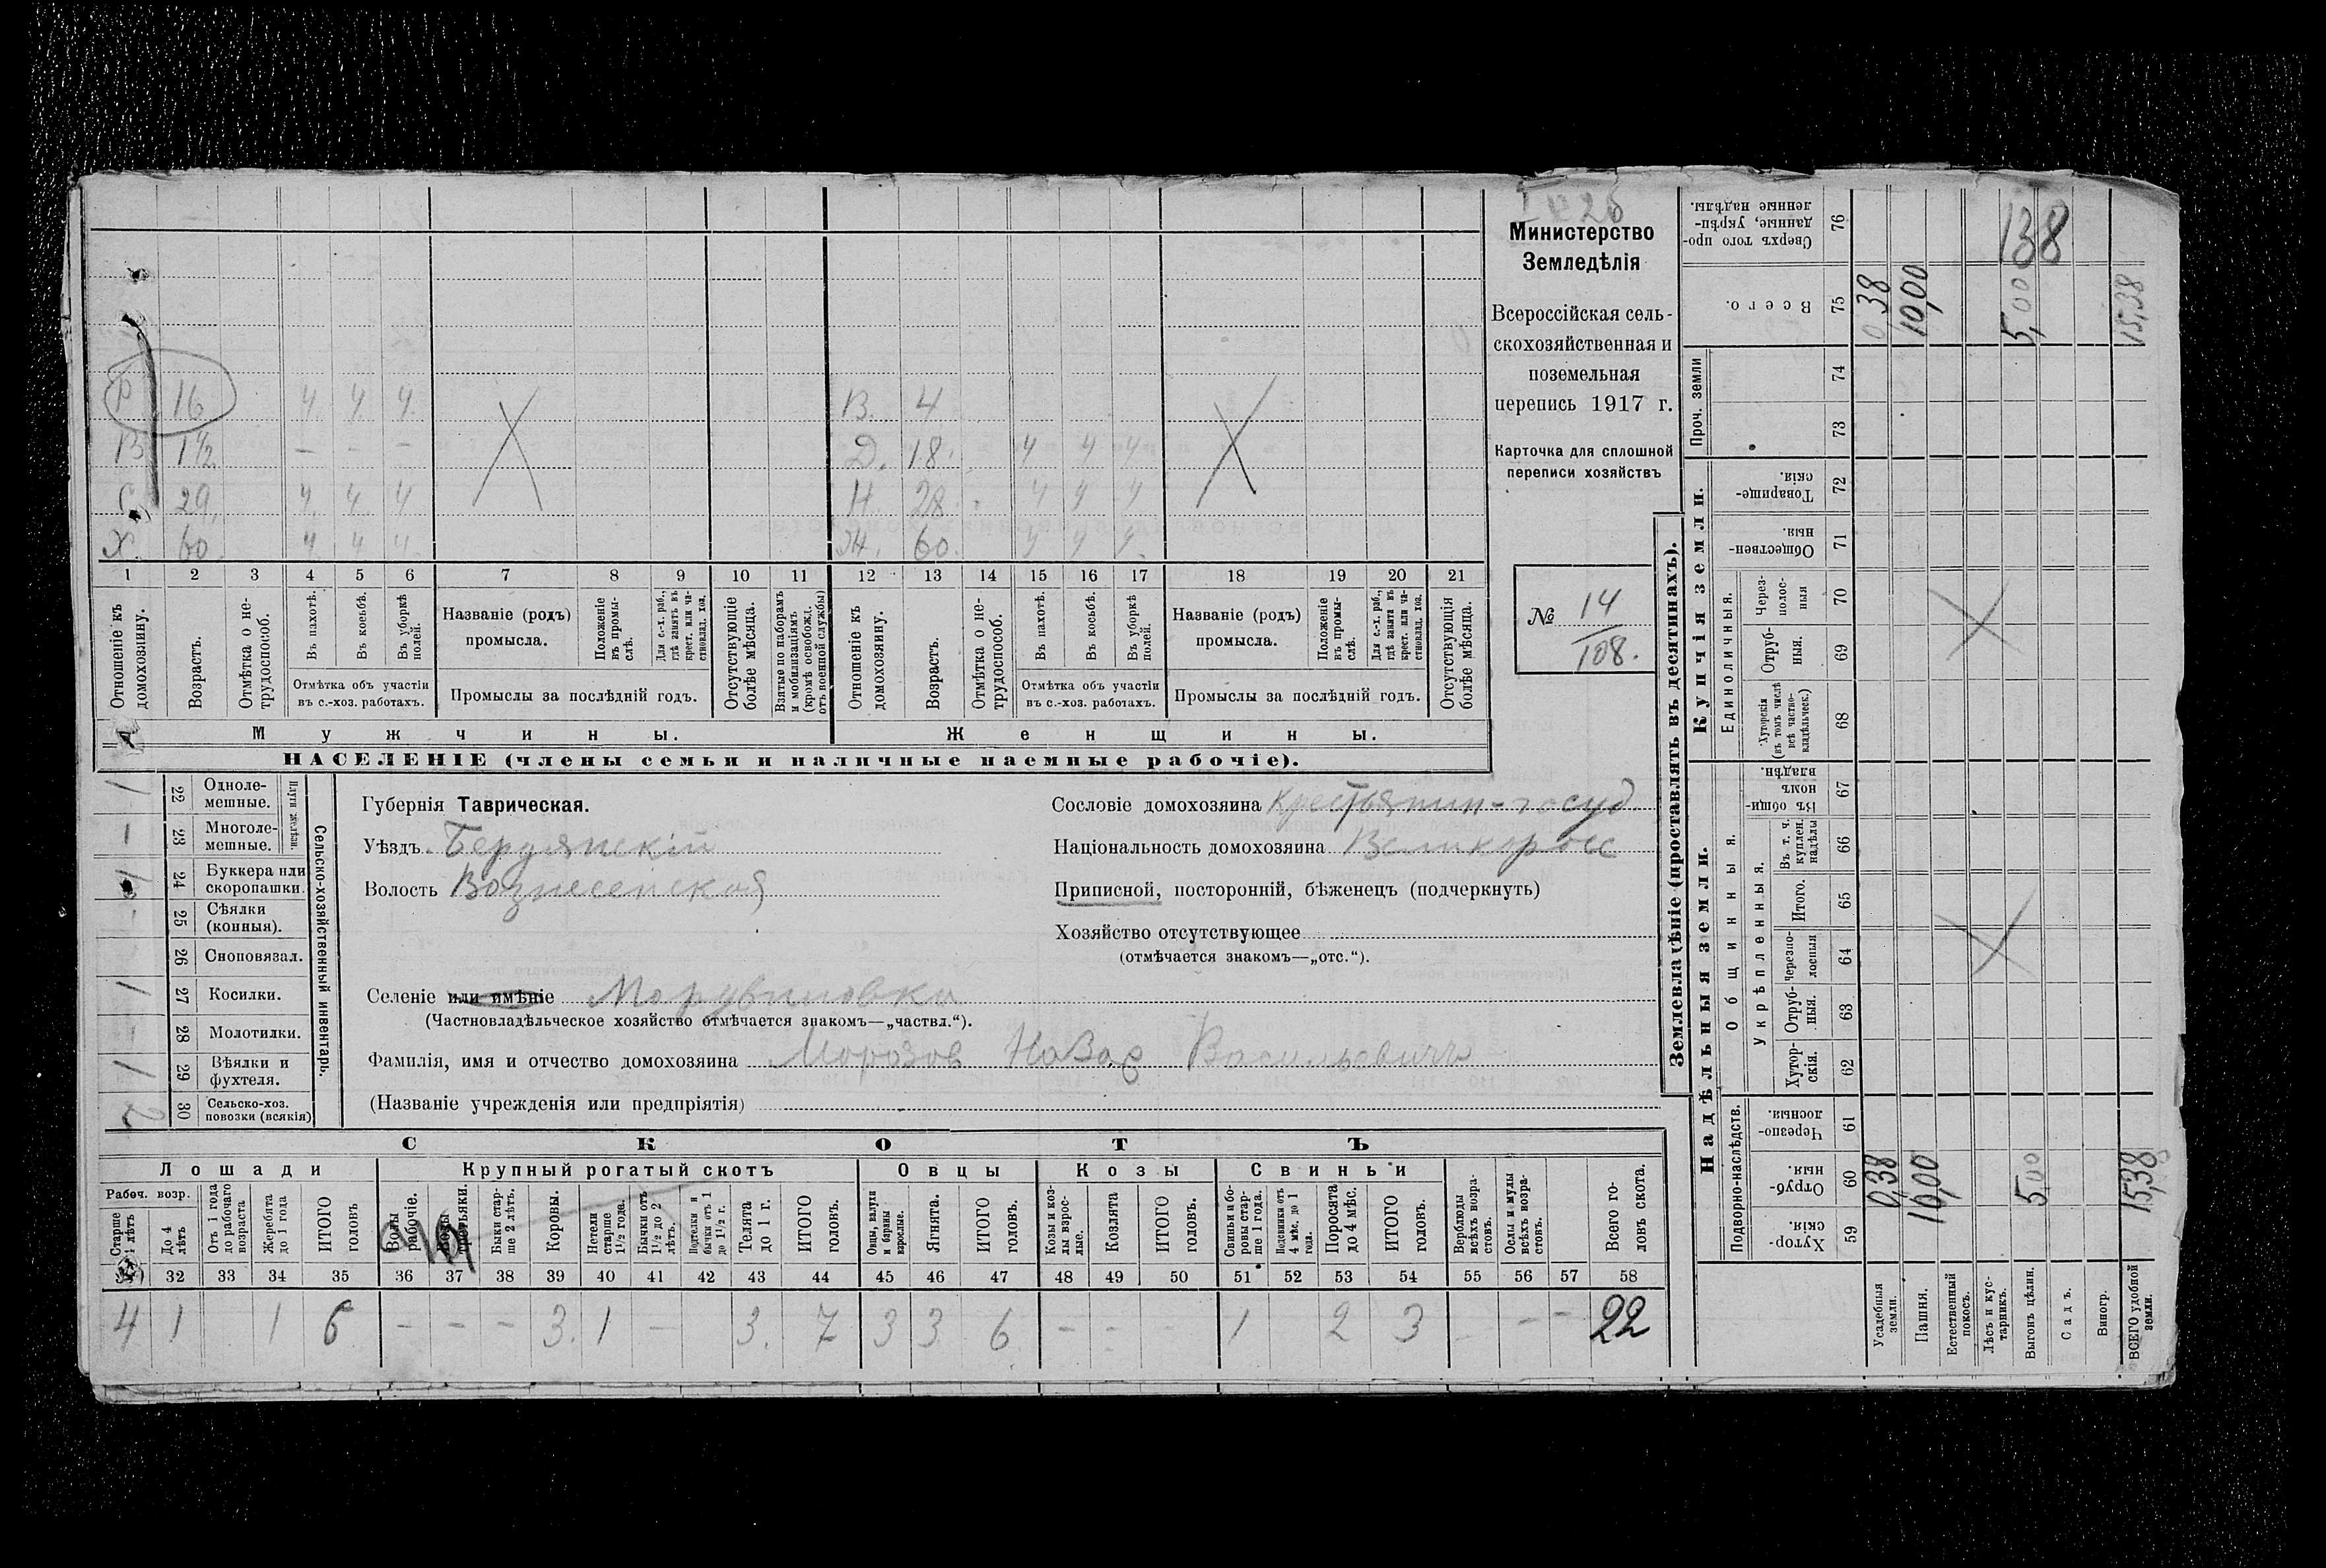 Министерство
Земледѣлія
Всероссійская сель-
скохозяйственная и
поземельная
перепись 1917 г.
Карточка для сплошной
переписи хозяйствъ
№ 14
108.
Р 16 ч. ч. ч.
В 1½ – – –
С 29. ч. ч. ч
Х. 60. ч. ч ч.
В. 4
Д. 18. ч ч ч
Н. 28. ч ч ч
Ж. 60. ч ч ч.
1 2 3 4 5 6 7 8 9 10 11 12 13 14 15 16 17 18 19 20 21
Отношеніе къ домохозяину.
Возрастъ.
Отмѣтка о не-трудоспособ.
Въ пахотѣ.
Въ косьбѣ.
Въ уборкѣ полей.
Отмѣтка объ участіи
въ с.-хоз. работахъ.
Названіе (родъ)
промысла.
Положеніе въ промы-слѣ.
Для с.-х. раб., гдѣ занятъ въ крест. или ча-стновлад. хоз.
Промыслы за послѣдній годъ.
Отсутствующіе болѣе мѣсяца.
Взятые по наборамъ и мобилизаціямъ (кромѣ освобожд. отъ военной службы)
Отношеніе къ домохозяину.
Возрастъ.
Отмѣтка о не-трудоспособ.
Въ пахотѣ.
Въ косьбѣ.
Въ уборкѣ полей.
Отмѣтка объ участіи
въ с.-хоз. работахъ.
Названіе (родъ)
промысла.
Положеніе въ промы-слѣ.
Для с.-х. раб., гдѣ занята въ крест. или ча-стновлад. хоз.
Промыслы за послѣдній годъ.
Отсутствующія болѣе мѣсяца.
Мужчины.
Женщины.
НАСЕЛЕНІЕ (члены семьи и наличные наемные рабочіе).
Сельско-хозяйственный инвентарь.
Плуги желѣзн.
1 22 Одноле-мешные.
1 23 Многоле-мешные.
1 24 Буккера или скоропашки.
25 Сѣялки (конныя).
26 Сноповязал.
1 27 Косилки.
28 Молотилки.
1 29 Вѣялки и фухтеля.
2 30 Сельско-хоз. повозки (всякія)
Губернія Таврическая.
Уѣздъ Бердянскій
Волость Вознесенская
Сословіе домохозяина Крестьянин-госуд
Національность домохозяина Великоросс
Приписной, посторонній, бѣженецъ (подчеркнуть)
Хозяйство отсутствующее
(отмѣчается знакомъ—„отс.“).
Селеніе или имѣніе Мордвиновка
(Частновладѣльческое хозяйство отмѣчается знакомъ—„частвл.“).
Фамилія, имя и отчество домохозяина Морозов Назар Васильевичъ
(Названіе учрежденія или предпріятія)
СКОТЪ
Лошади
Крупный рогатый скотъ
Овцы
Козы
Свиньи
Рабоч. возр.
Старше 4 лѣтъ
До 4 лѣтъ
Отъ 1 года до рабочаго возраста
Жеребята до 1 года
ИТОГО головъ
Волы рабочіе.
Волы третьяки.
Быки стар-ше 2 лѣтъ.
Коровы.
Нетели старше 1½ года.
Бычки отъ 1½ до 2 лѣтъ.
Подтелки и бычки отъ 1 до 1½ г.
Телята до 1 г.
ИТОГО головъ.
Овцы, валухи и бараны взрослые.
Ягнята.
ИТОГО головъ.
Козы и коз-лы взрос-лые.
Козлята
ИТОГО головъ.
Свиньи и бо-ровы стар-ше 1 года.
Подсвинки отъ 4 мѣс. до 1 года.
Поросята до 4 мѣс.
ИТОГО головъ.
Верблюды всѣхъ возра-стовъ.
Ослы и мулы всѣхъ возра-стовъ.
Всего го-ловъ скота.
32 33 34 35 36 37 38 39 40 41 42 43 44 45 46 47 48 49 50 51 52 53 54 55 56 57 58
4 1 1 6 – – – 3. 1 – 3. 7 3 3 6 – – – 1 2 3 – – – 22
Землевладѣніе (проставлять въ десятинахъ).
Надѣльныя земли.
Купчія земли.
Проч. земли
Подворно-наслѣдств.
Общинныя.
Укрѣпленныя.
Единоличныя.
Сверхъ того про-данные, укрѣп-ленные надѣлы. 76
Всего. 75
74
73
Товарище-скія. 72
Обществен-ныя. 71
Через-полос-ныя 70
Отруб-ныя. 69
Хуторскія (въ томъ числѣ всѣ частно-владѣльческ.) 68
Въ общин-номъ владѣн. 67
Въ т. ч. куплен. надѣлы 66
Итого. 65
Черезпо-лосныя 64
Отруб-ныя. 63
Хутор-скія. 62
Черезпо-лосныя. 61
Отруб-ныя. 60
Хутор-скія. 59
Усадебныя земли.
Пашня.
Естественный покосъ.
Лѣсъ и кус-тарникъ.
Выгонъ цѣлин.
Садъ.
Виногр.
ВСЕГО удобной земли.
138
0,38 10,00 5,00 15,38
0,38 10,00 5,00 15,38